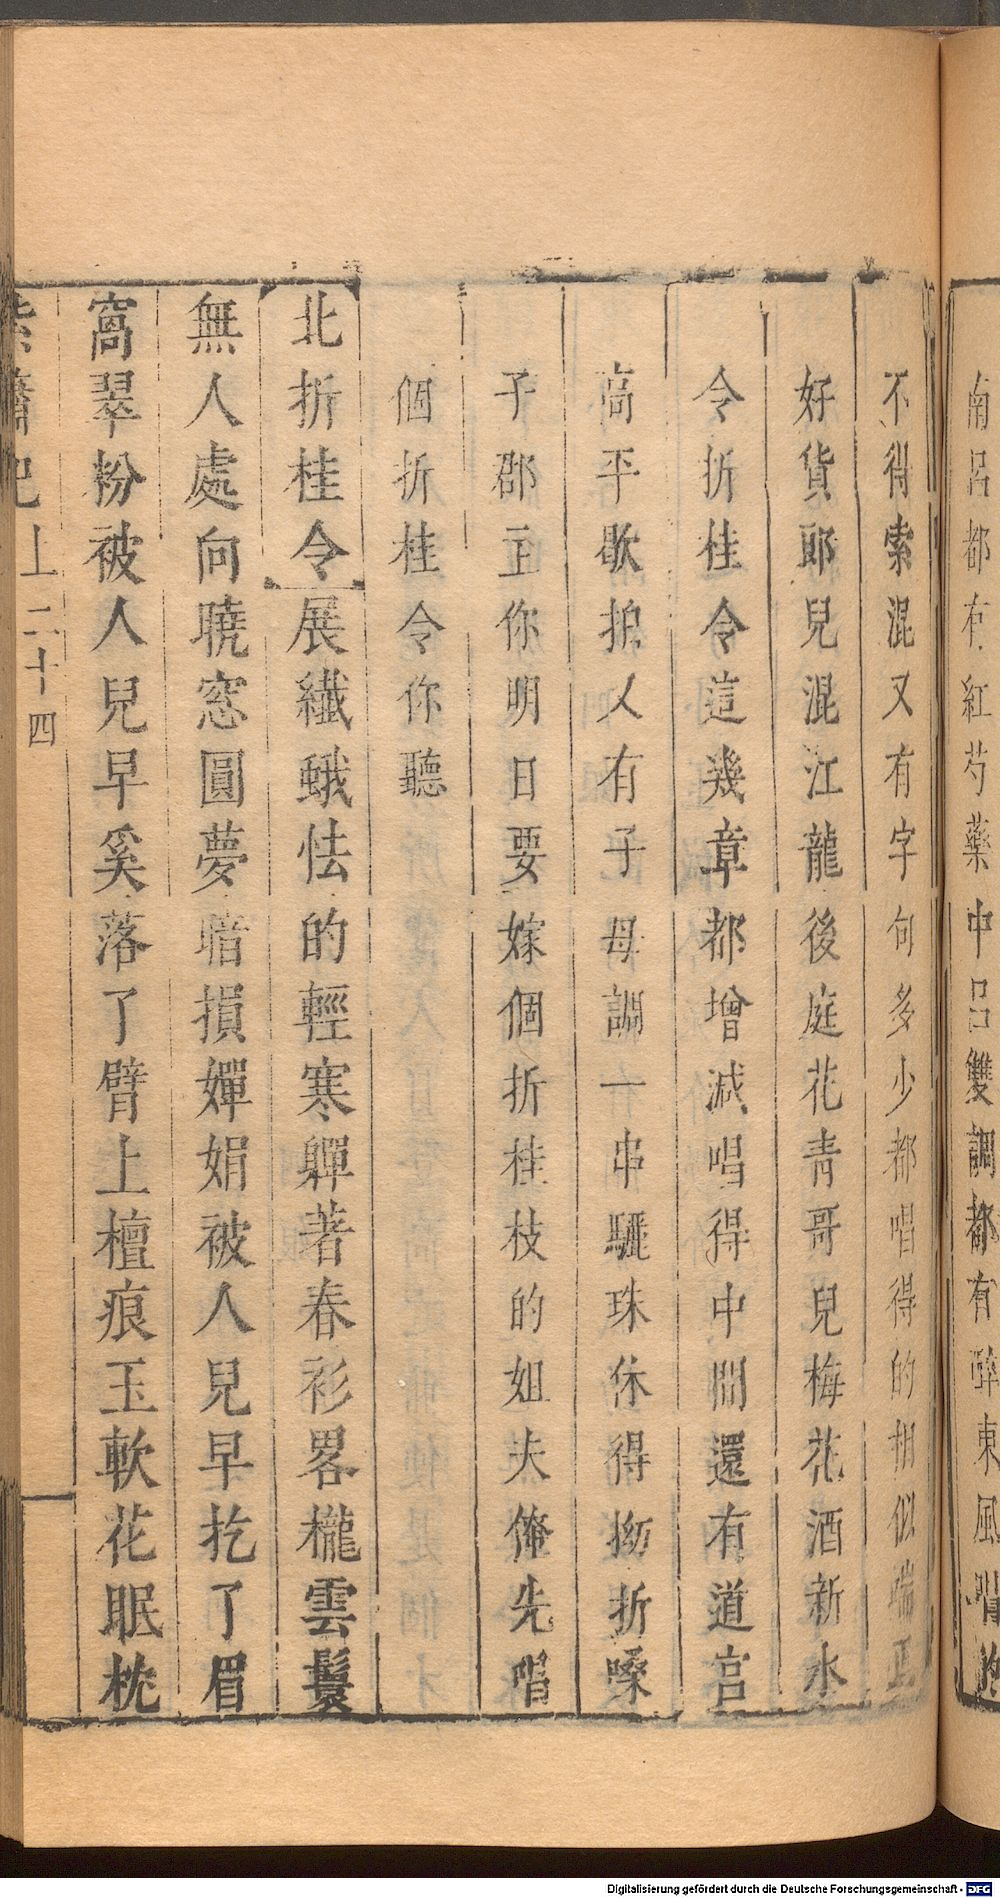 南呂都有紅芍藥中呂雙調都有醉東風唱的
不得索混又有字句多少都唱得的相似端正
好貨郎兒混江龍後庭花青哥兒梅花酒新水
令折桂令這幾章都增減唱得中間還有道宮
高平歇拍又有子母調一串驪珠休得拗折嗓
子郡主你明日要嫁個折桂枝的姐夫俺先唱
個折桂令你聽
北折桂令展纖蛾怯的輕寒軃著春衫畧櫳雲鬟
無人處向曉窓圓夢暗損嬋娟被人兒早扢了眉
窩翠粉被人兒早奚落了臂上檀痕玉軟花眠枕
紫簫記上二十四
Digitalisierung gefördert durch die Deutsche Forschungsgemeinschaft - DFG